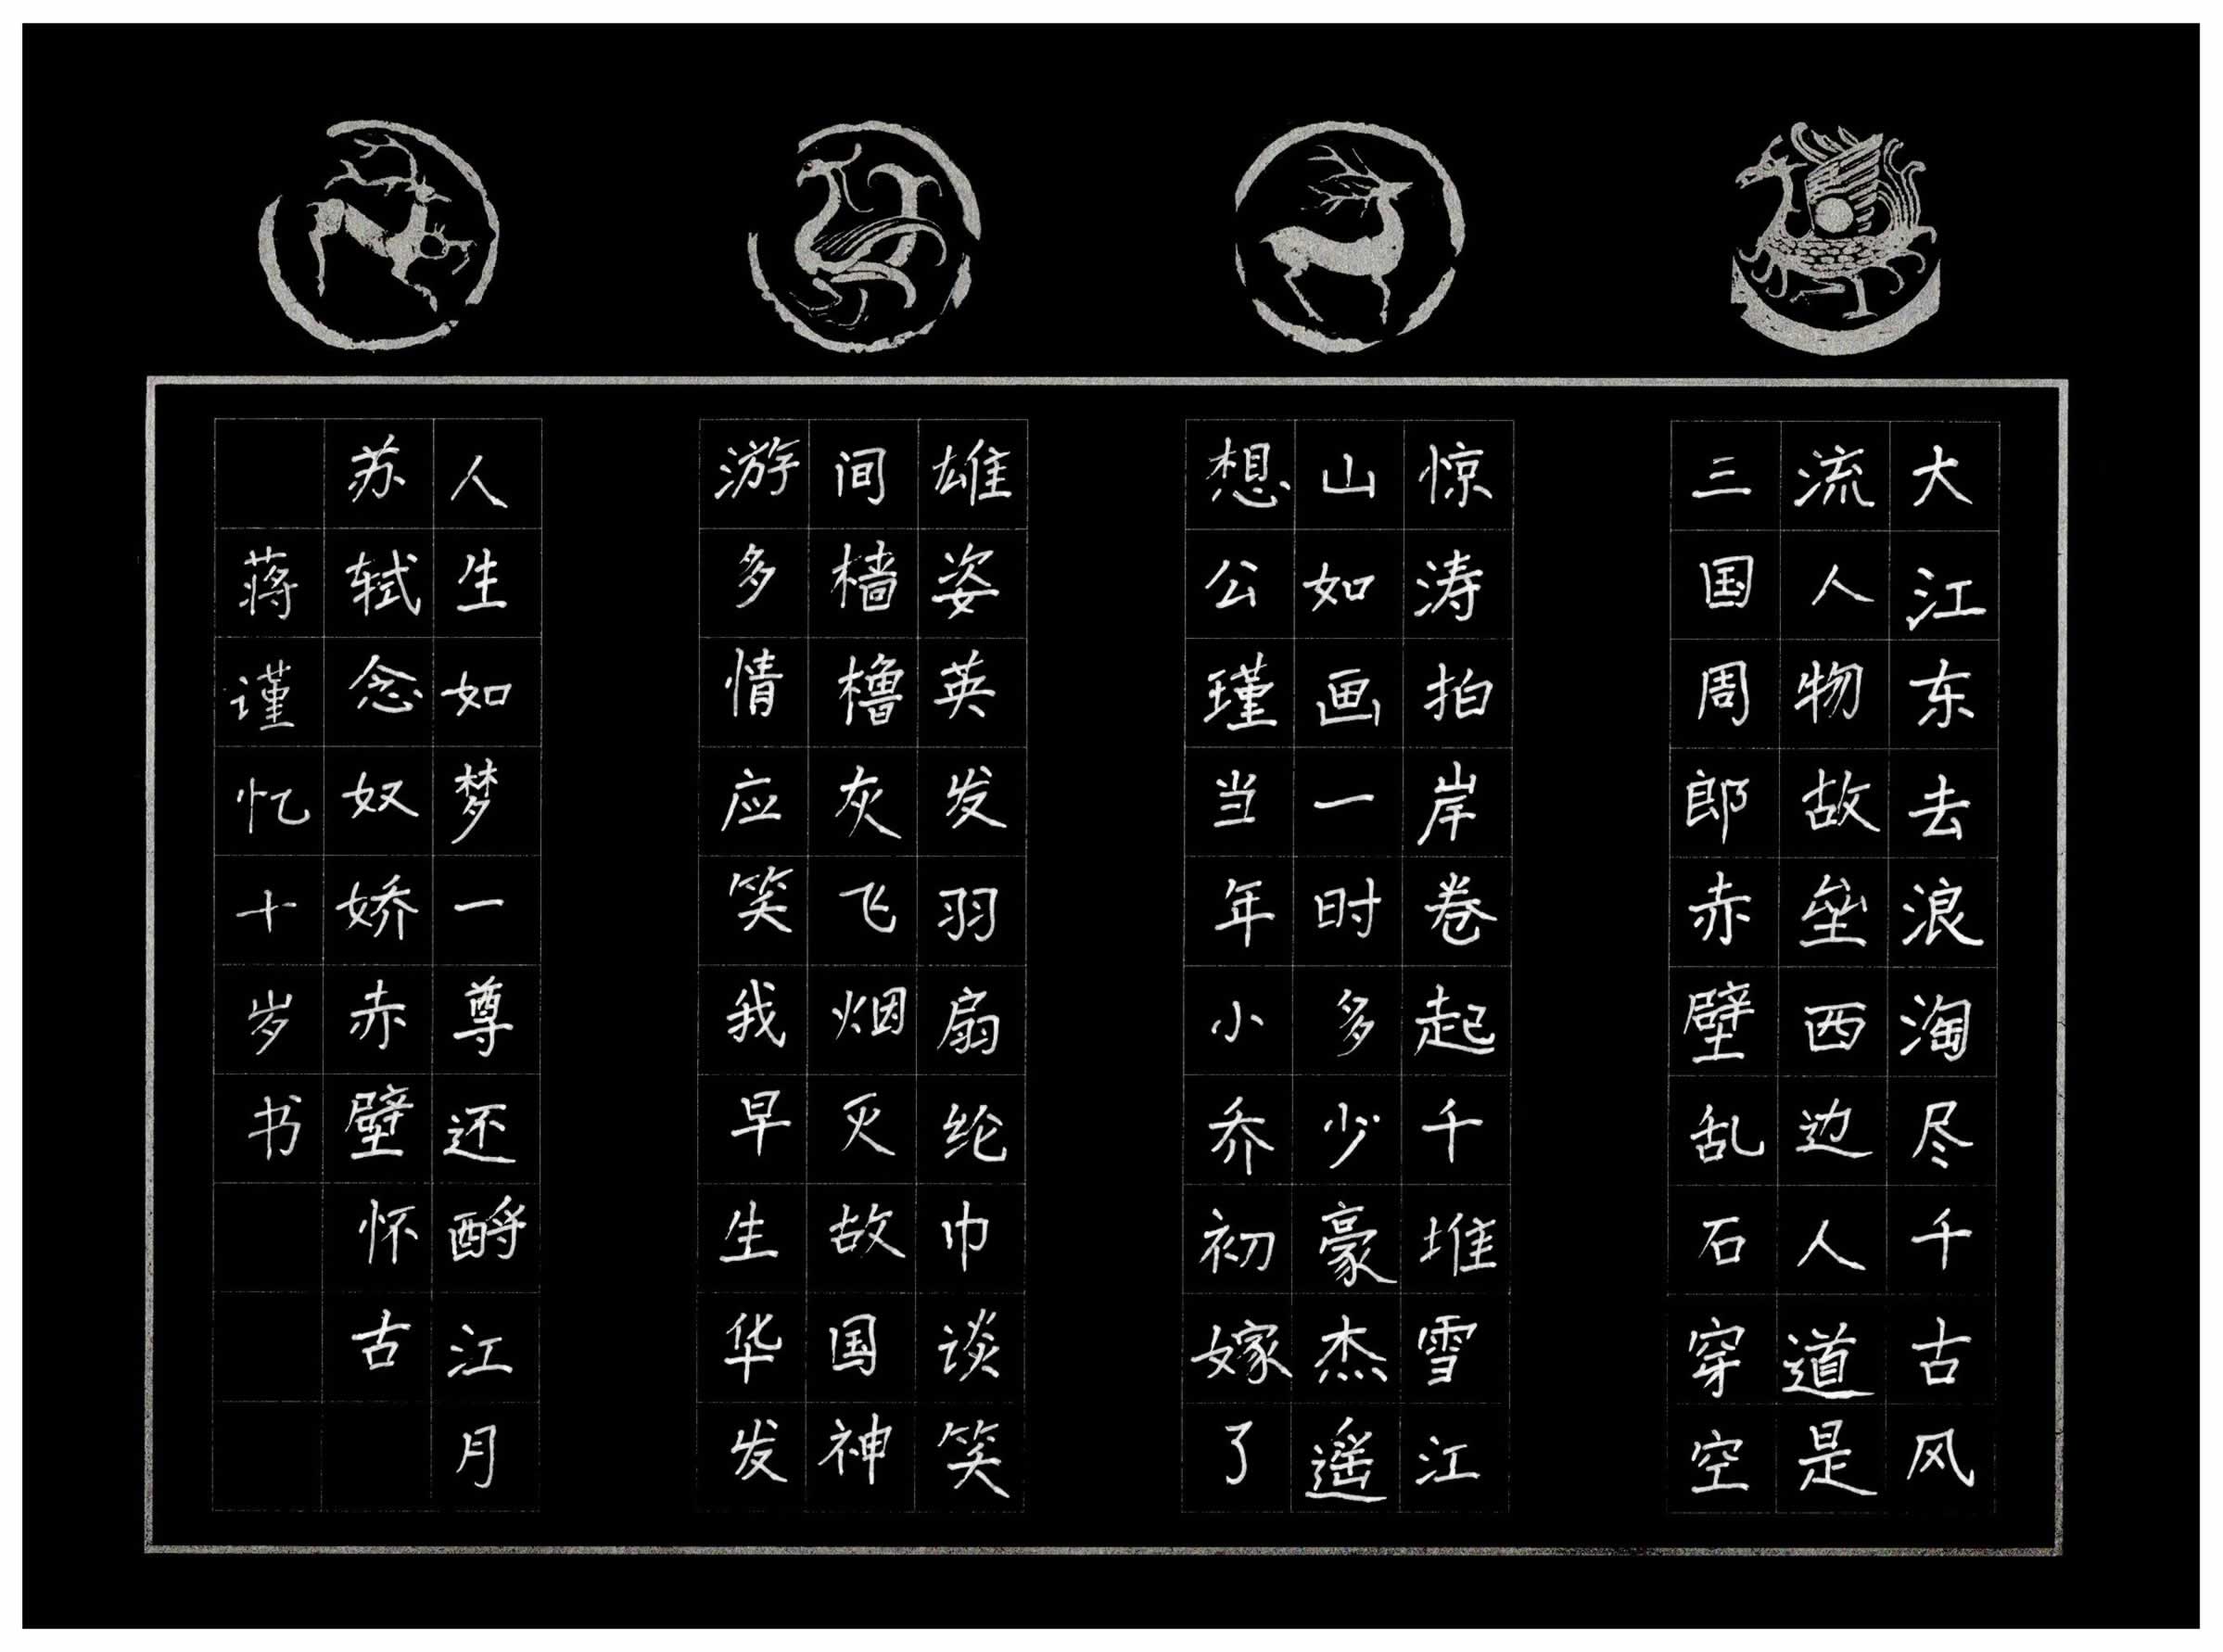 大江东去浪淘尽千古风
流人物故垒西边人道是
三国周郎赤壁乱石穿空
惊涛拍岸卷起千堆雪江
山如画一时多少豪杰遥
想公瑾当年小乔初嫁了
雄姿英发羽扇纶巾谈笑
间樯橹灰飞烟灭故国神
游多情应笑我早生华发
人生如梦一尊还酹江月
苏轼念奴娇赤壁怀古
蒋谨忆十岁书